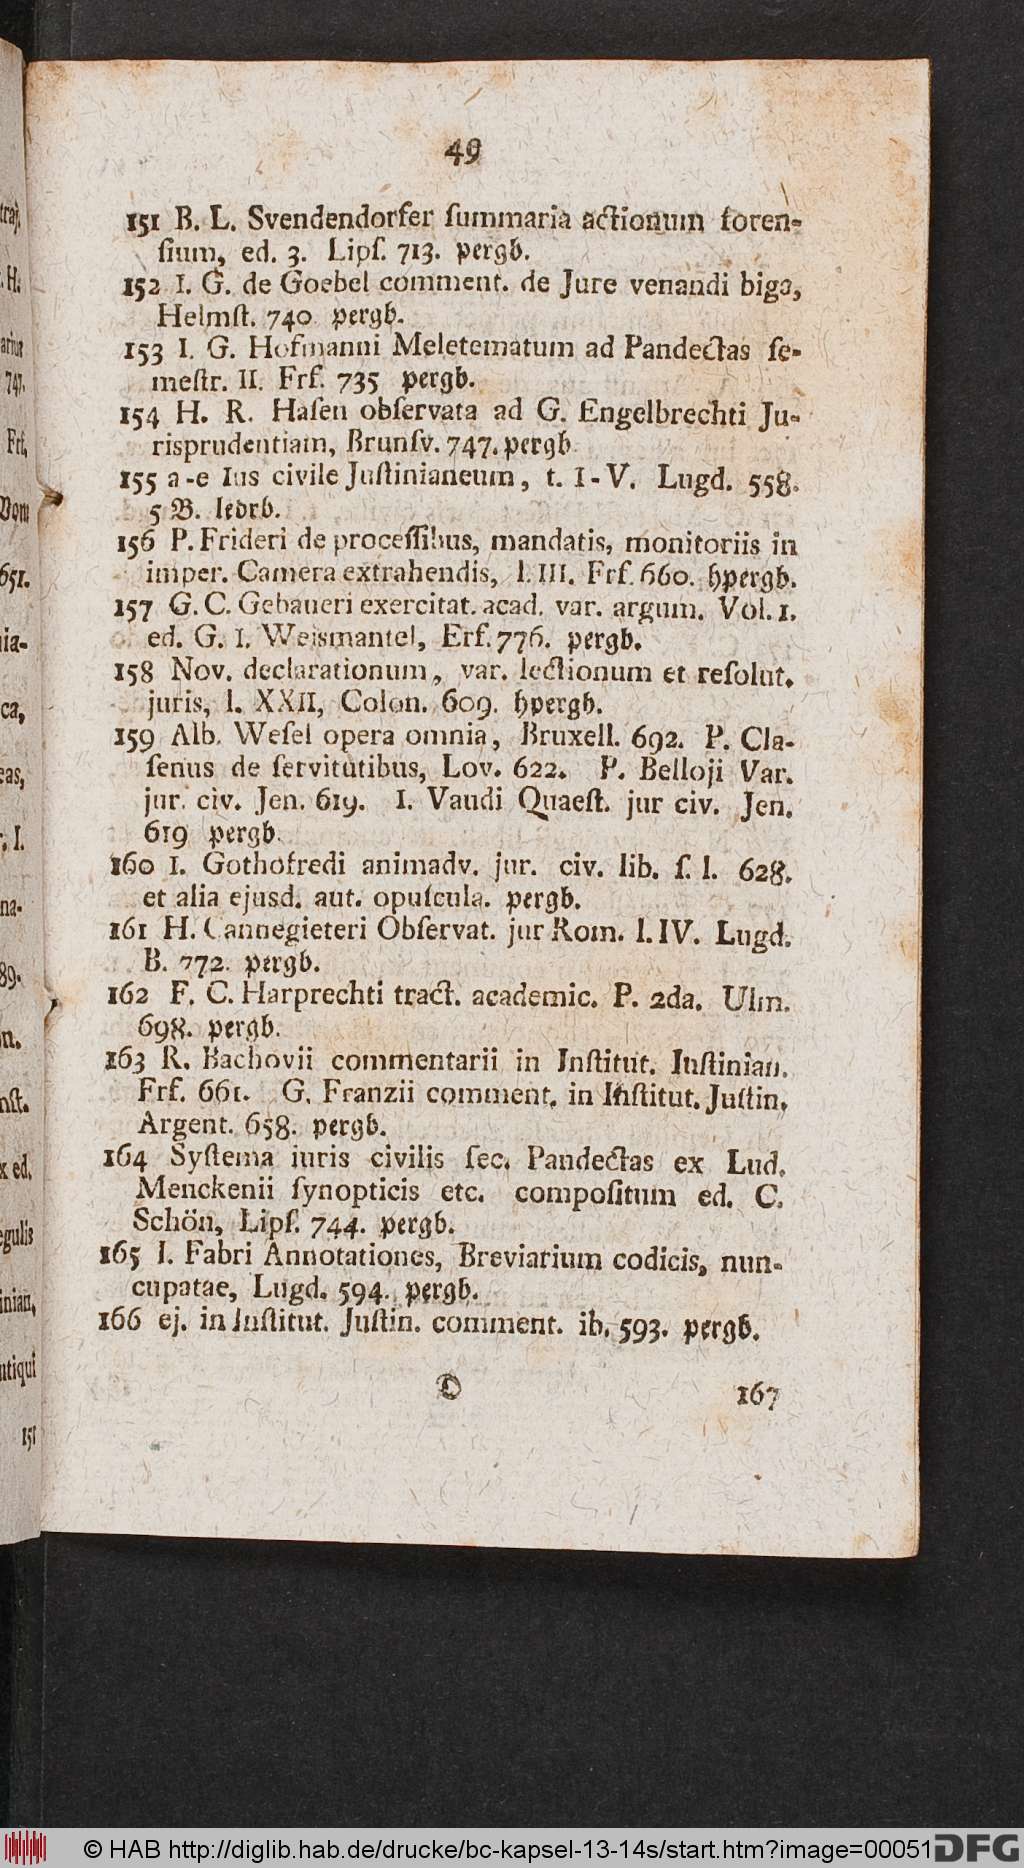 49
151 B. L. Svendendorfer ſummaria actionum foren-
ſium, ed. 3. Lipſ. 713. pergb.
152 I. G. de Goebel comment. de Jure venandi biga,
Helmſt. 740 pergb.
153 I. G. Hofmanni Meletematum ad Pandectas ſe-
meſtr. II. Frf. 735 pergb.
154 H. R. Haſen obſervata ad G. Engelbrechti Ju-
risprudentiam, Brunſv. 747. pergb
155 a-e Ius civile Juſtinianeum, t. I-V. Lugd. 558.
5 B. ledrb.
156 P. Frideri de proceſſibus, mandatis, monitoriis in
imper. Camera extrahendis, l. III. Frf. 660. hpergb.
157 G. C. Gebaueri exercitat. acad. var. argum. Vol. 1.
ed. G. I. Weismantel, Erf. 776. pergb.
158 Nov. declarationum, var. lectionum et reſolut.
juris, l. XXII, Colon. 609. hpergb.
159 Alb. Weſel opera omnia, Bruxell. 692. P. Cla-
ſenus de ſervitutibus, Lov. 622. P. Belloji Var.
jur. civ. Jen. 619. I. Vaudi Quaeſt. jur civ. Jen.
619 pergb.
160 I. Gothofredi animadv. jur. civ. lib. ſ. l. 628.
et alia ejusd. aut. opuſcula. pergb.
161 H. Cannegieteri Obſervat. jur Rom. l. IV. Lugd.
B. 772. pergb.
162 F. C. Harprechti tract. academic. P. 2da. Ulm.
698. pergb.
163 R. Bachovii commentarii in Inſtitut. Iuſtinian.
Frf. 661. G. Franzii comment. in Inſtitut. Juſtin.
Argent. 658. pergb.
164 Syſtema iuris civilis ſec. Pandectas ex Lud.
Menckenii ſynopticis etc. compoſitum ed. C.
Schön, Lipſ. 744. pergb.
165 I. Fabri Annotationes, Breviarium codicis, nun-
cupatae, Lugd. 594. pergb.
166 ej. in Inſtitut. Juſtin. comment. ib. 593. pergb.
D 167
© HAB http://diglib.hab.de/drucke/bc-kapsel-13-14s/start.htm?image=00051
DFG